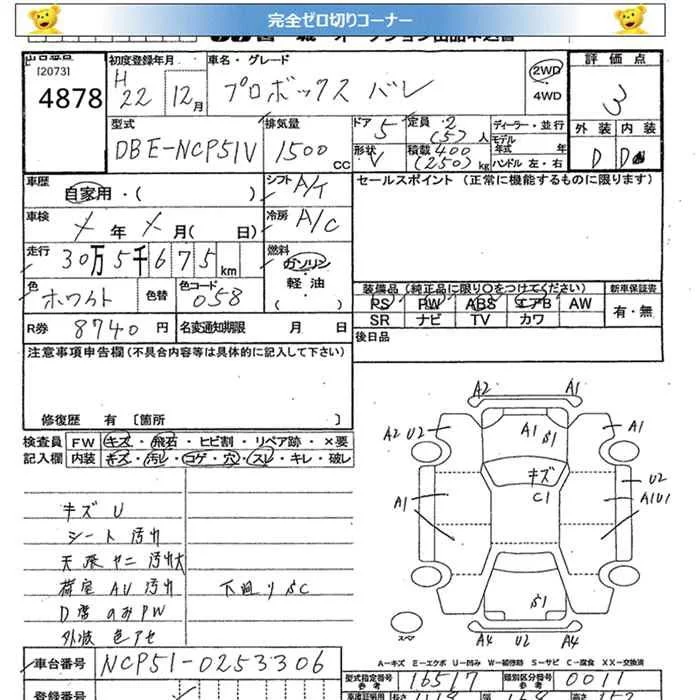 完全ゼロ切りコーナー
出品番号 初度登録年月 車名・グレード 評価点
[2073] H
4878 22年 12月 プロボックス バン 2WD 4WD 3
型式 排気量 ドア 定員 ディーラー・並行 外装 内装
DBE-NCP51V 1500 CC 5 2 (5)人 モデル年式 年 D D
形状 V 積載 400 (250)kg ハンドル 左・右
車歴 自家用・( ) シフト A/T セールスポイント (正常に機能するものに限ります)
車検 メ年 メ月( 日) 冷房 A/C
走行 30万5千675km 燃料 ガソリン・軽油( )
色 ホワイト 色替 色コード 058
装備品 (純正品に限り○をつけてください) 新車保証書
PS PW ABS エアB AW 有・無
SR ナビ TV カワ
R券 8740円 名変通知期限 月 日
後日品
注意事項申告欄 (不具合内容等は具体的に記入して下さい)
修復歴 有 〔箇所 〕
検査員 FW キズ・飛石・ヒビ割・リペア跡・×要
記入欄 内装 キズ・汚レ・コゲ・穴・スレ・キレ・破レ
キズ U
シート 汚れ
天張 ヤニ 汚れ大
荷室 AU 汚れ
下廻り SC
D席 のみPW
外波 色アセ
A2 A1
A2 U2 A1 S1 A1
キズ
C1
U2
A1 A1U1
S1
A4 U2 A4
スペア
A－キズ E－エクボ U－凹み W－補修跡 S－サビ C－腐食 XX－交換済
車台番号 NCP51-0253306
型式指定番号 参考 16517 類別区分番号 参考 0011
登録番号